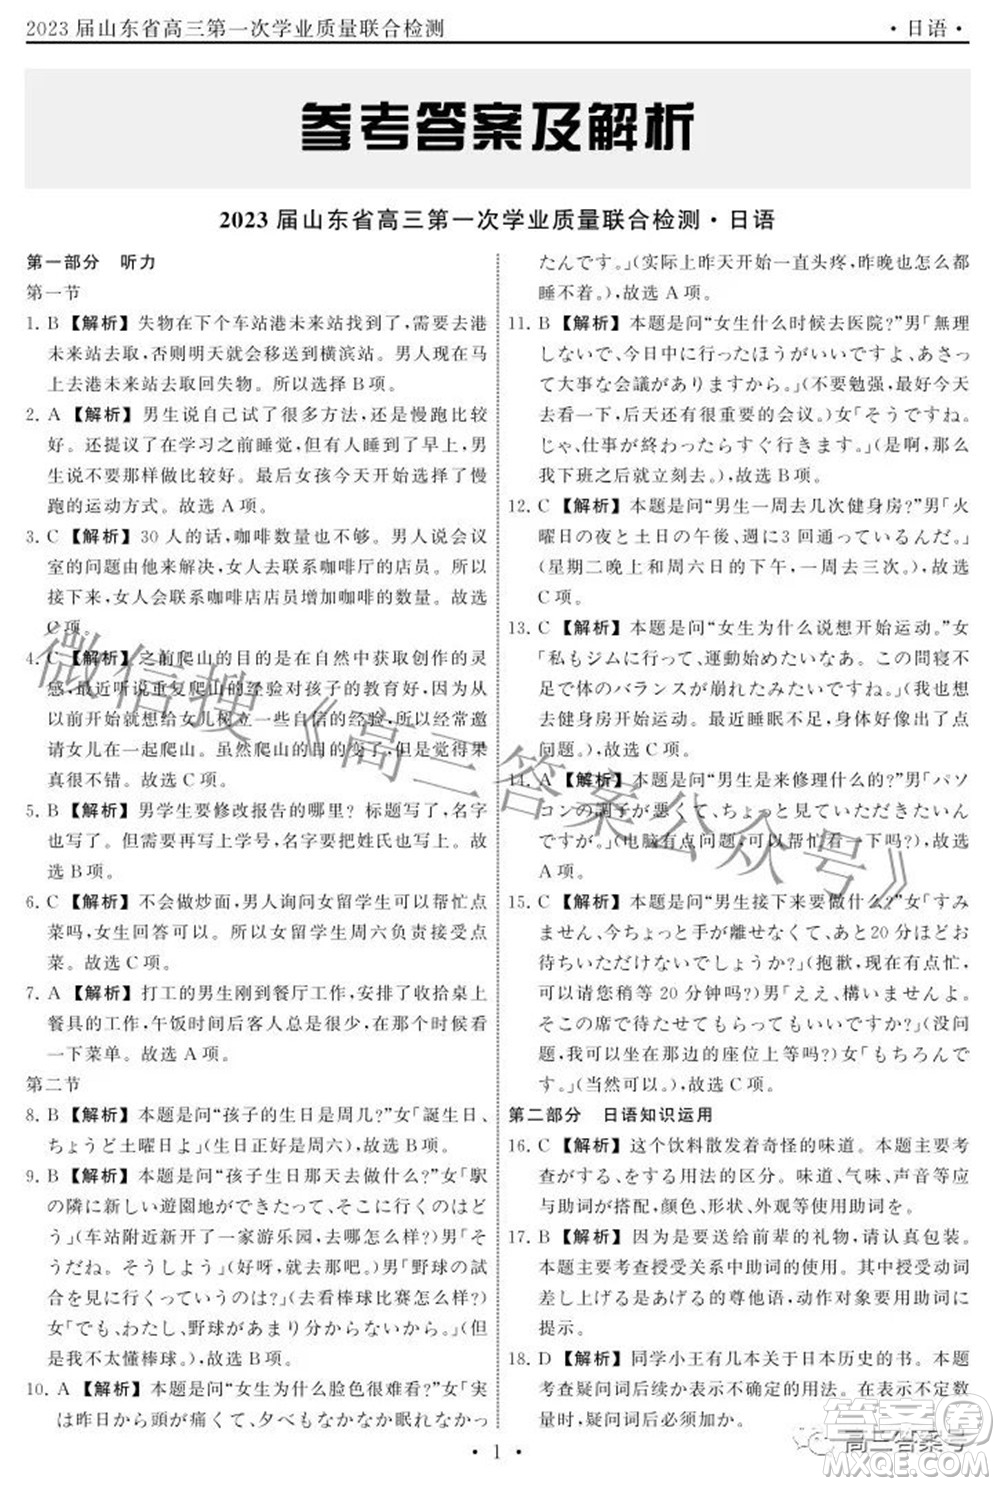 2023 届山东省高三第一次学业质量联合检测
· 日语 ·
参考答案及解析
2023 届山东省高三第一次学业质量联合检测 · 日语
第一部分　听力
第一节
1. B 【解析】失物在下个车站港未来站找到了,需要去港
未来站去取,否则明天就会移送到横滨站。男人现在马
上去港未来站去取回失物。所以选 B 项。
2. A 【解析】男生说自己试了很多方法,还是慢跑比较
好。还提到了在学习之前睡觉,但有人睡到了早上,男
生说那样做比较好。最后女孩今天开始了选择了慢
跑的运动方式。故选 A 项。
3. C 【解析】30 人的话,咖啡数量也不够。男人说会议
室的问题由他来解决,女人去联系咖啡厅的店员。
接下来,女人会联系咖啡店店员增加咖啡的数量。故选
C 项。
4. C 【解析】之前爬山的目的是在自然中获取创作的灵
感,最近听说重复爬山的经验对孩子的教育好,已经从
以前就开始想给女儿树立一些自信的经验,所以经常邀
请女儿在一起爬山。虽然爬山的目的变了,但是觉得果
真很不错。故选 C 项。
5. B 【解析】男学生要修改报告的哪里? 标题写了,名字
也写了。但要写上学号,名字要把姓氏也写上。故选
B 项。
6. C 【解析】不会做炒面,男人询问女留学生可以帮忙点
菜吗,女生回答可以。所以女留学生周六负责接受点
菜。故选 C 项。
7. A 【解析】打工的男生刚到餐厅工作,安排了收拾桌上
餐具的工作,午饭时间后客人总是很少,有时候帮忙看
一下菜单。故选 A 项。
第二节
8. B 【解析】本题是问“孩子的生日是周几?”女「誕生日、
ちょうど土曜日だよ」(生日正好是周六)。故选 B 项。
9. B 【解析】本题是问“孩子生日那天干什么?”女「駅
の隣に新しい遊園地ができたって、そこに行くのはど
う」(车站旁边开了一家游乐园,去那里怎么样)男「そう
ねえ。そうしよう」(好呀,就去那里吧)男「野球の試
合を見に行くっていうのは?」(去看棒球比赛怎么样?)
女「でも、わたし、野球があまり分からないから。」(但是
我不太懂棒球。)故选 B 项。
10. A 【解析】本题是问“女生为什么脸色很难看?”女「実
は昨日から頭が痛くて、夕べもなかなか眠れなかっ
たんです。」(实际上昨天开始一直头疼,昨晚也怎么都
睡不着。)故选 A 项。
11. B 【解析】本题是问“女生什么时候去医院?”男「無理
しないで、今日中に行ったほうがいいですよ、あさっ
て大事な会議がありますから。」(不要勉强,最好今天
去看一下,后天有很重要的会议。)女「そうですね。
じゃ、仕事が終わったらすぐ行きます。」(是啊,那么
我下班之后就立刻去。)故选 B 项。
12. C 【解析】本题是问“男生一周去几次健身房?”男「火
曜日の夜と土日の午後、週に3回通っているんだ。」
(星期二晚上和周六日的下午,一周去三次。)故选
C 项。
13. C 【解析】本题是问“女生为什么说想开始运动。”女
「私もジムに通って、運動始めたいなあ。最近眠れな
いで体のバランスが崩れたみたいですから。」(我也想
去健身房开始运动。最近睡眠不足,身体好像出了点
问题。)。故选 C 项。
14. A 【解析】本题是问“男生是来修理什么的?”男「パソ
コンの調子が悪くて、ちょっと見ていただきたいん
ですが。」(电脑有点问题,可以帮忙看一下吗?)故选
A 项。
15. C 【解析】本题是问“男生接下来要做什么?”女「すみ
ません、今ちょっと手が離せなくて、あと20 分ほどお待
ちいただけないでしょうか?」(抱歉,现在有点忙,
可以请您稍等 20 分钟吗?)男「ええ、構いませんよ。
そこの席で待たせてもらってもいいですか」(没问
题,我可以在那边的座位上等吗?)女「もちろんで
す。」(当然可以。)故选 C 项。
第二部分　日语知识运用
16. C 【解析】这个饮料散发着奇怪的味道。本题主要考
查がする、をする用法的区分。味道、气味、声音等应
与助词が搭配,颜色、形状、外观等应与助词を。
17. B 【解析】因为是要送给前辈的礼物,所以请包装。
本题主要考查授受关系中助词的使用。后项授受动词
差し上げる是あげる的尊他语,动作对象与助词に
呼应。
18. D 【解析】同学小王有几本关于日本历史的书。本题
主要考查疑问词表示不确定的用法。在表示不定数
量时,疑问词后应与助词か相呼应。
· 1 ·
微信搜《高三答案公众号》
高三答案号
答案圈
MXQE.COM